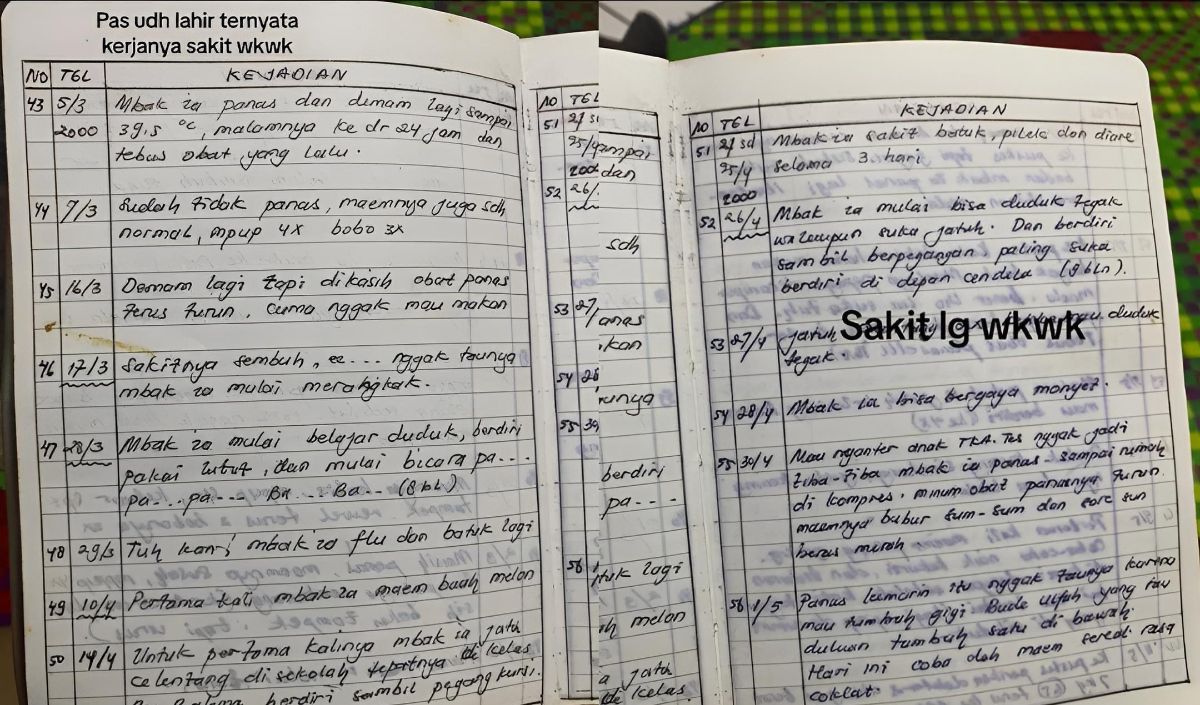 Pas udh lahir ternyata
kerjanya sakit wkwk
NO TGL KEJADIAN
43 5/3 Mbak ia panas dan demam lagi sampai
2000 39,5 °C, malamnya ke dr 24 jam dan
tebus obat yang lalu.
44 7/3 Sudah tidak panas, maemnya juga sdh
normal, mpup 4x bobo 3x
45 16/3 Demam lagi tapi dikasih obat panas
terus turun, cuma nggak mau makan
46 17/3 Sakitnya sembuh, ee... nggak taunya
mbak ia mulai merangkak.
47 28/3 Mbak ia mulai belajar duduk, berdiri
pakai lutut, dan mulai bicara pa....
pa...pa.... Ba...Ba.. (8 bl)
48 29/3 Tuh kan! mbak ia flu dan batuk lagi
49 10/4 Pertama kali mbak ia maem buah melon
50 14/4 Untuk pertama kalinya mbak ia jatuh
celentang di sekolah tepatnya di kelas
berdiri sambil pegang kursi.
NO TGL
51 21 sd
25/4 ampai
2000 dan
52 26/
sdh
53 27/ anas
kan
54 28
unya
55 30
berdiri
pa----
56 tuk lagi
h melon
a jatu
di kelas
NO TGL KEJADIAN
51 21 sd Mbak ia sakit batuk, pilek dan diare
25/4 selama 3 hari
2000
52 26/4 Mbak ia mulai bisa duduk tegak
walaupun suka jatuh. Dan berdiri
sambil berpegangan, paling suka
berdiri di depan cendila (9 bln).
53 27/4 jatuh duduk
Sakit lg wkwk
tegak.
54 28/4 Mbak ia bisa bergaya monyet.
55 30/4 Mau nganter anak TKA. Tes nggak jadi
tiba-tiba mbak ia panas sampai rumah
di kompres. minum obat panasnya turun.
maemnya bubur sum-sum dan sore sun
beras merah.
56 1/5 Panas kemarin itu nggak taunya karena
mau tumbuh gigi. Bude yang tau
duluan tumbuh satu di bawah.
Hari ini coba dah maem sereal rasa
coklat.